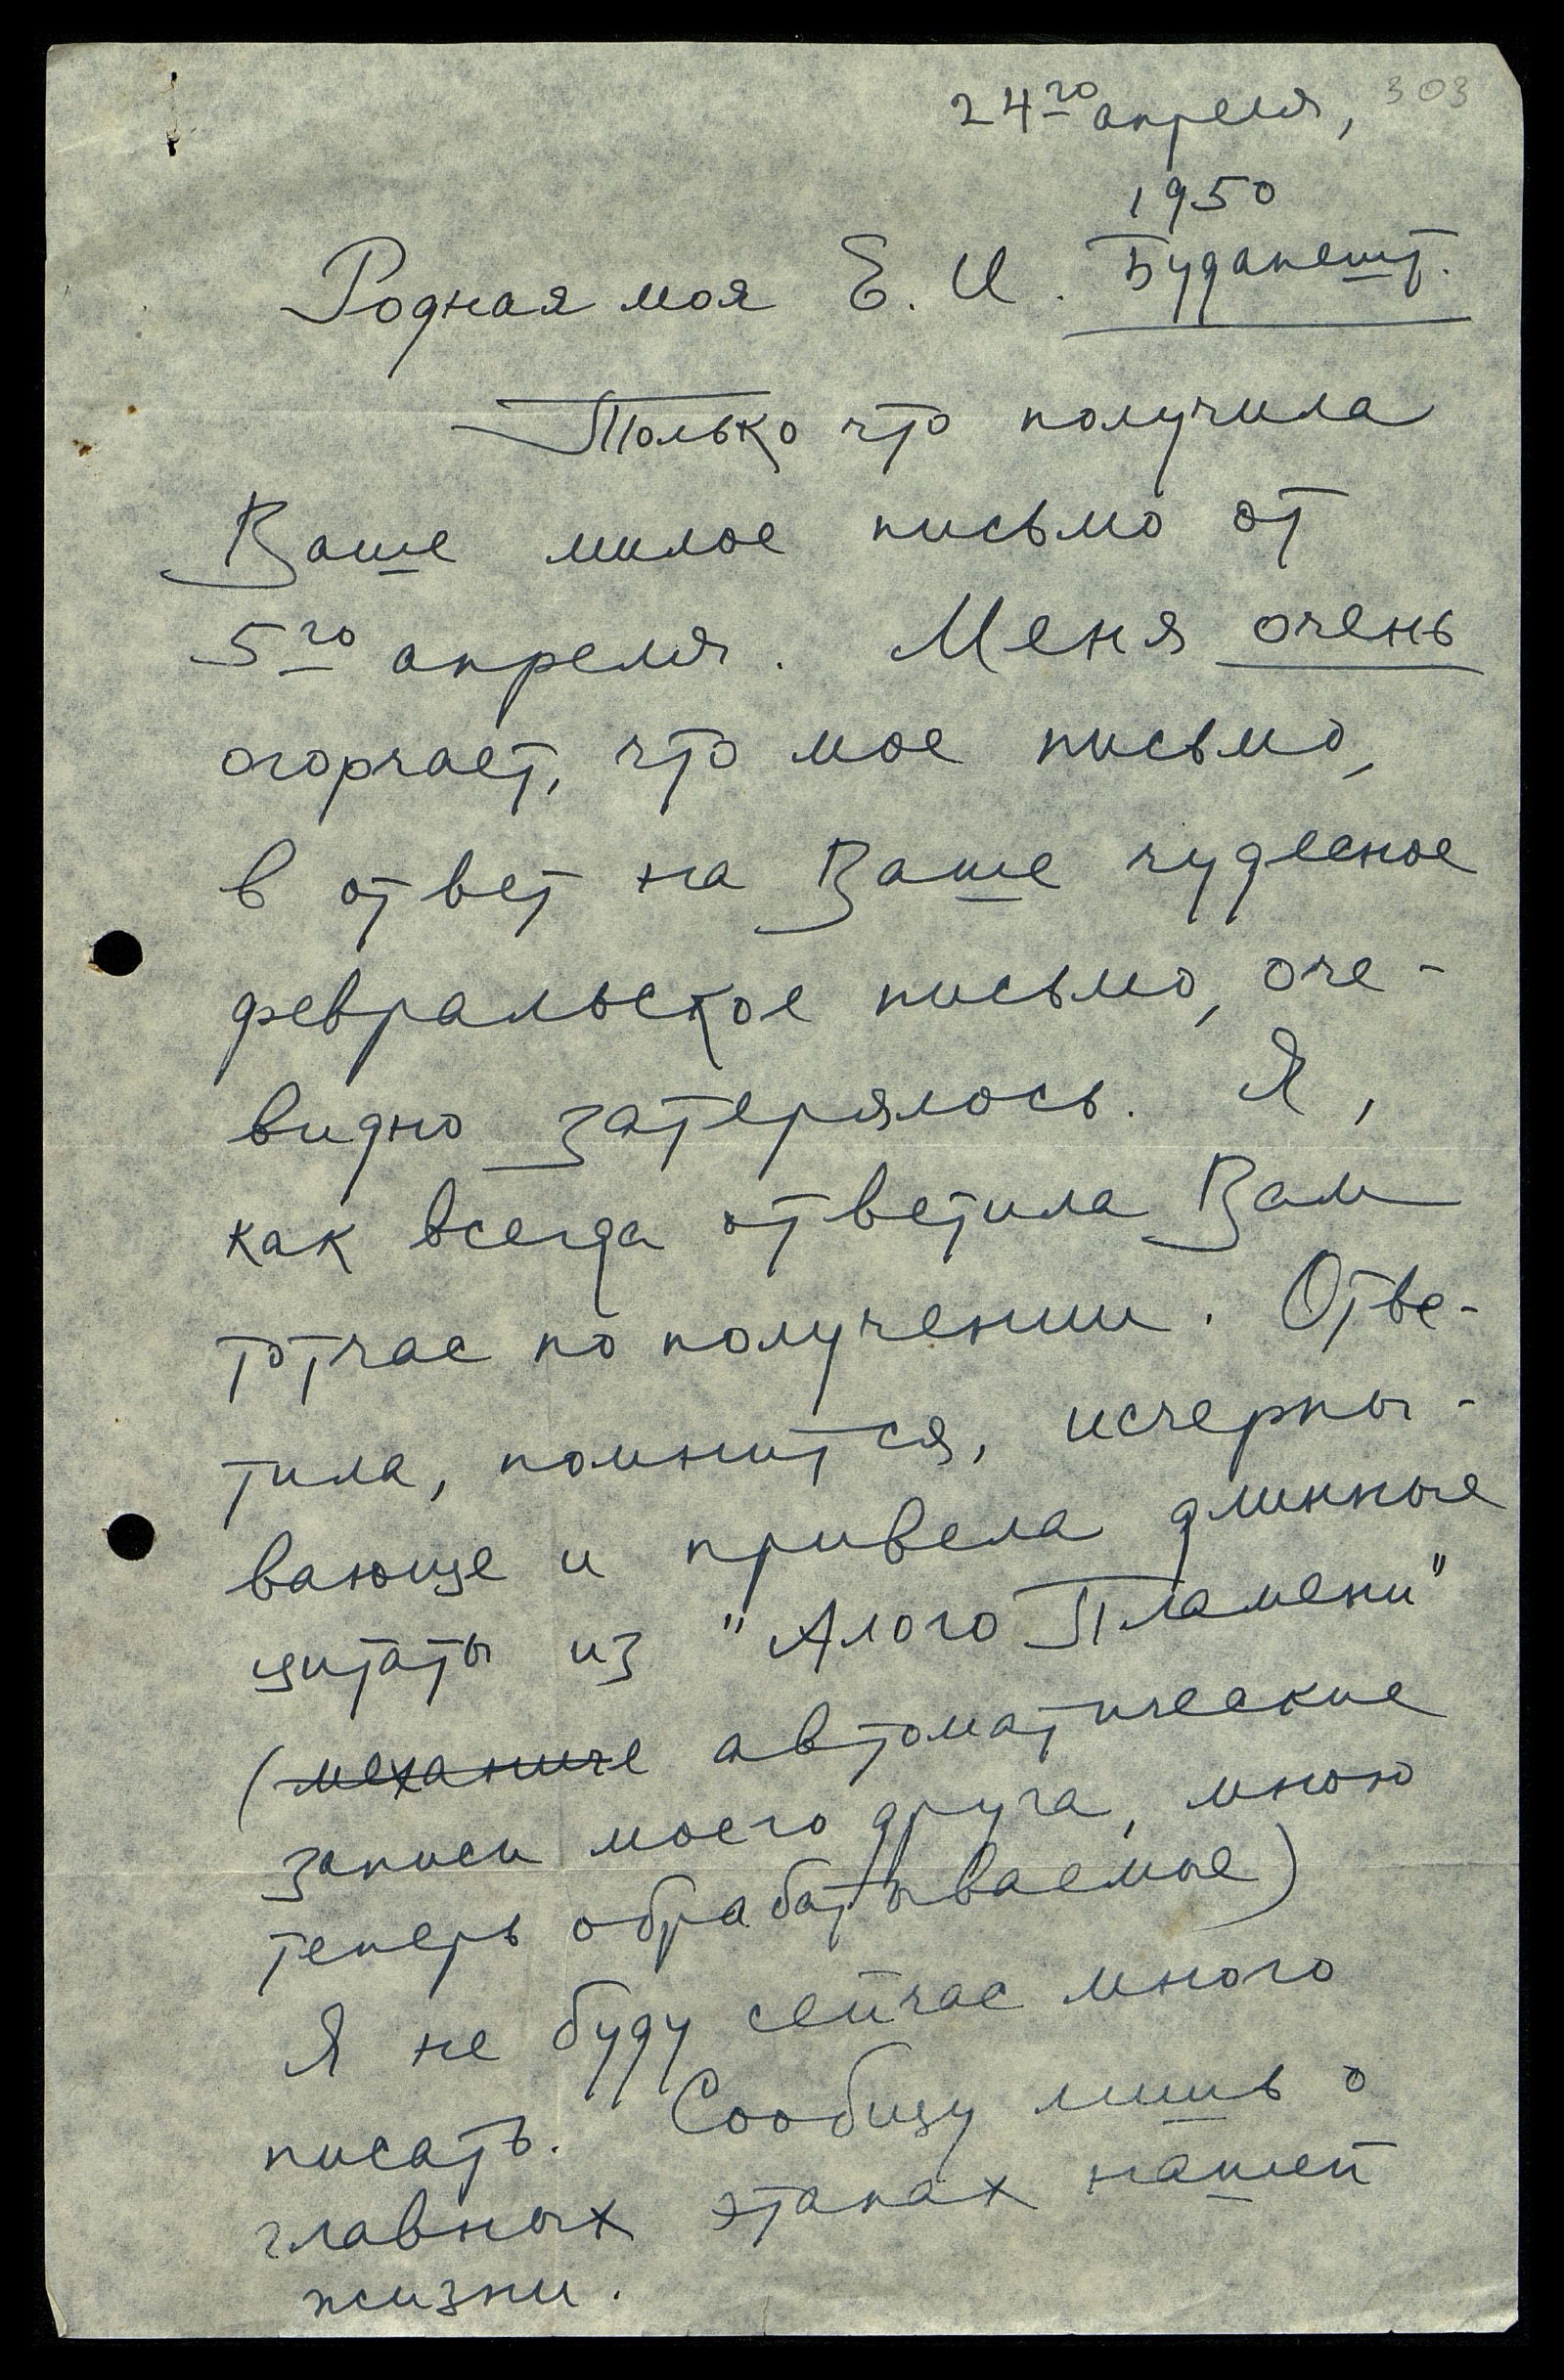 303
24го апреля,
1950
Родная моя Е. И. Будапешт.
Только что получила
Ваше милое письмо от
5го апреля. Меня очень
огорчает, что мое письмо,
в ответ на Ваше чудесное
февральское письмо, оче-
видно затерялось. Я,
как всегда ответила Вам
тотчас по получении. Отве-
тила, помнится, исчерпы-
вающе и привела длинные
цитаты из "Алого Пламени"
(механиче автоматические
записи моего друга, мною
теперь обрабатываемые)
Я не буду сейчас много
писать. Сообщу лишь о
главных этапах нашей
жизни.